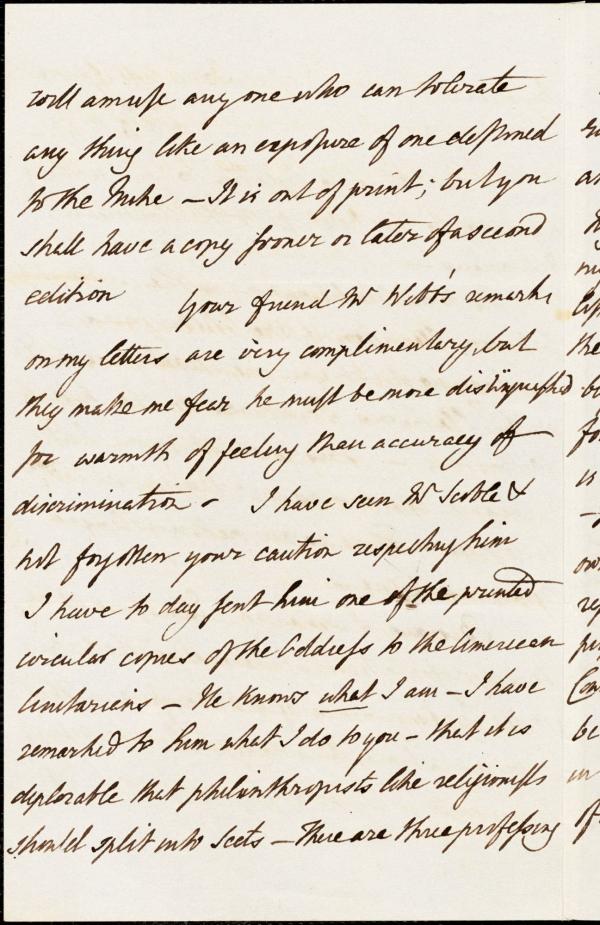 will amuse any one who can tolerate
any thing like an exposure of one destined
to the Mitre – It is out of print; but you
shall have a copy sooner or later of a second
edition Your friend Mr Webb's remarks
on my letters are very complimentary, but
they make me fear he must be more distinguished
for warmth of feeling than accuracy of
discrimination – I have seen Mr Scoble &
not forgotten your caution respecting him
I have to day sent him one of the printed
circular copies of the Address to the American
Unitarians – He knows what I am – I have
remarked to him what I do to you – that it is
deplorable that philanthropists like religionists
should split into Sects – There are three professing